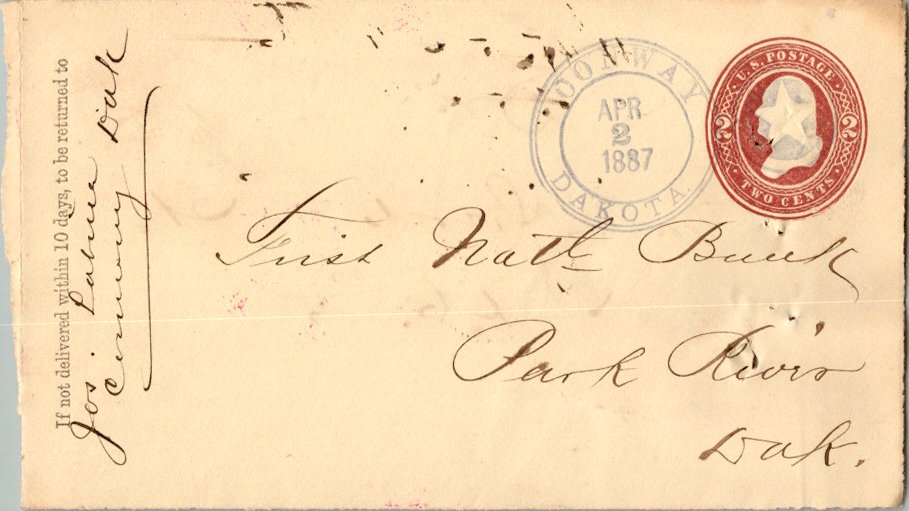 If not delivered within 10 days, to be returned to
Jos
Conway Dak
CONWAY
APR.
2
1887
DAKOTA.
U.S. POSTAGE
2 2
TWO CENTS
First Natl Bank
Park River
Dak.